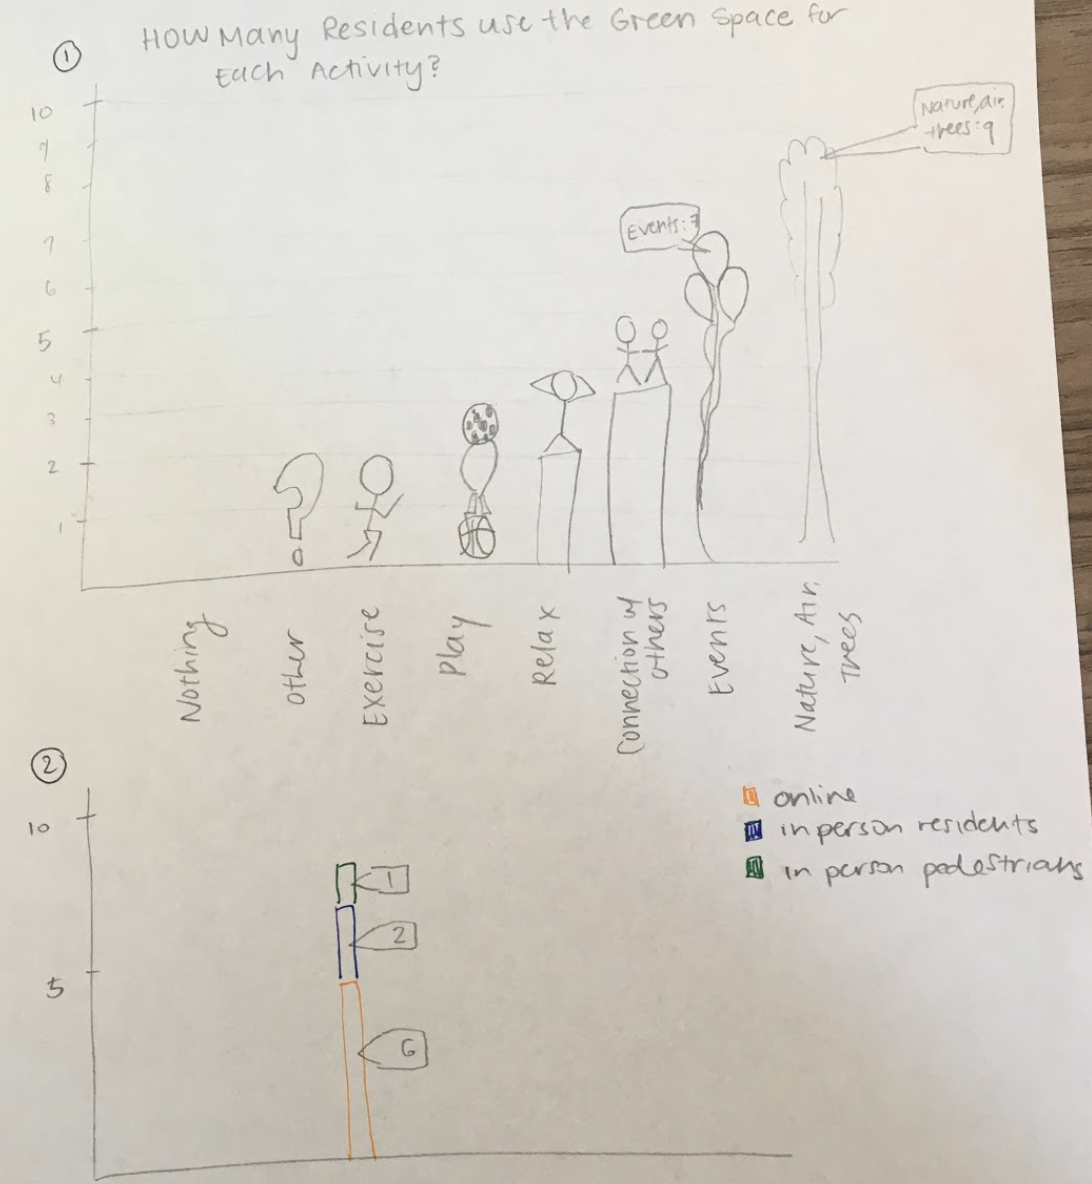 ①
How Many Residents use the Green Space for
Each Activity?
10
9
8
7
6
5
4
3
2
1
Nature, air,
trees: 9
Events: 7
Nothing
Other
Exercise
Play
Relax
Connection w/
others
Events
Nature, Air,
Trees
②
10
5
1
2
6
online
in person residents
in person pedestrians